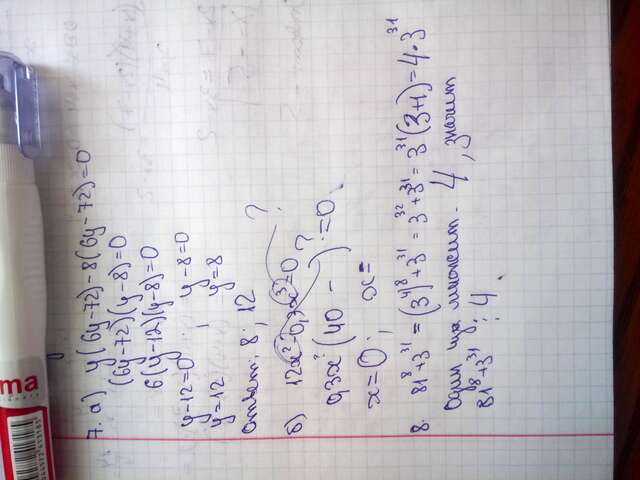 7. а) y(6y-72)-8(6y-72)=0
(6y-72)(y-8)=0
6(y-12)(y-8)=0
y-12=0 ; y-8=0
y=12 y=8
Ответ: 8; 12
б) 12x²-0,3x³=0 ?
0,3x²(40 - ) =0 ?
x=0; x=
8. 81⁸+3³¹=(3⁴)⁸+3³¹=3³²+3³¹=3³¹(3+1)=4·3³¹
Один из множит. 4, значит
81⁸+3³¹ ⋮ 4.
ma